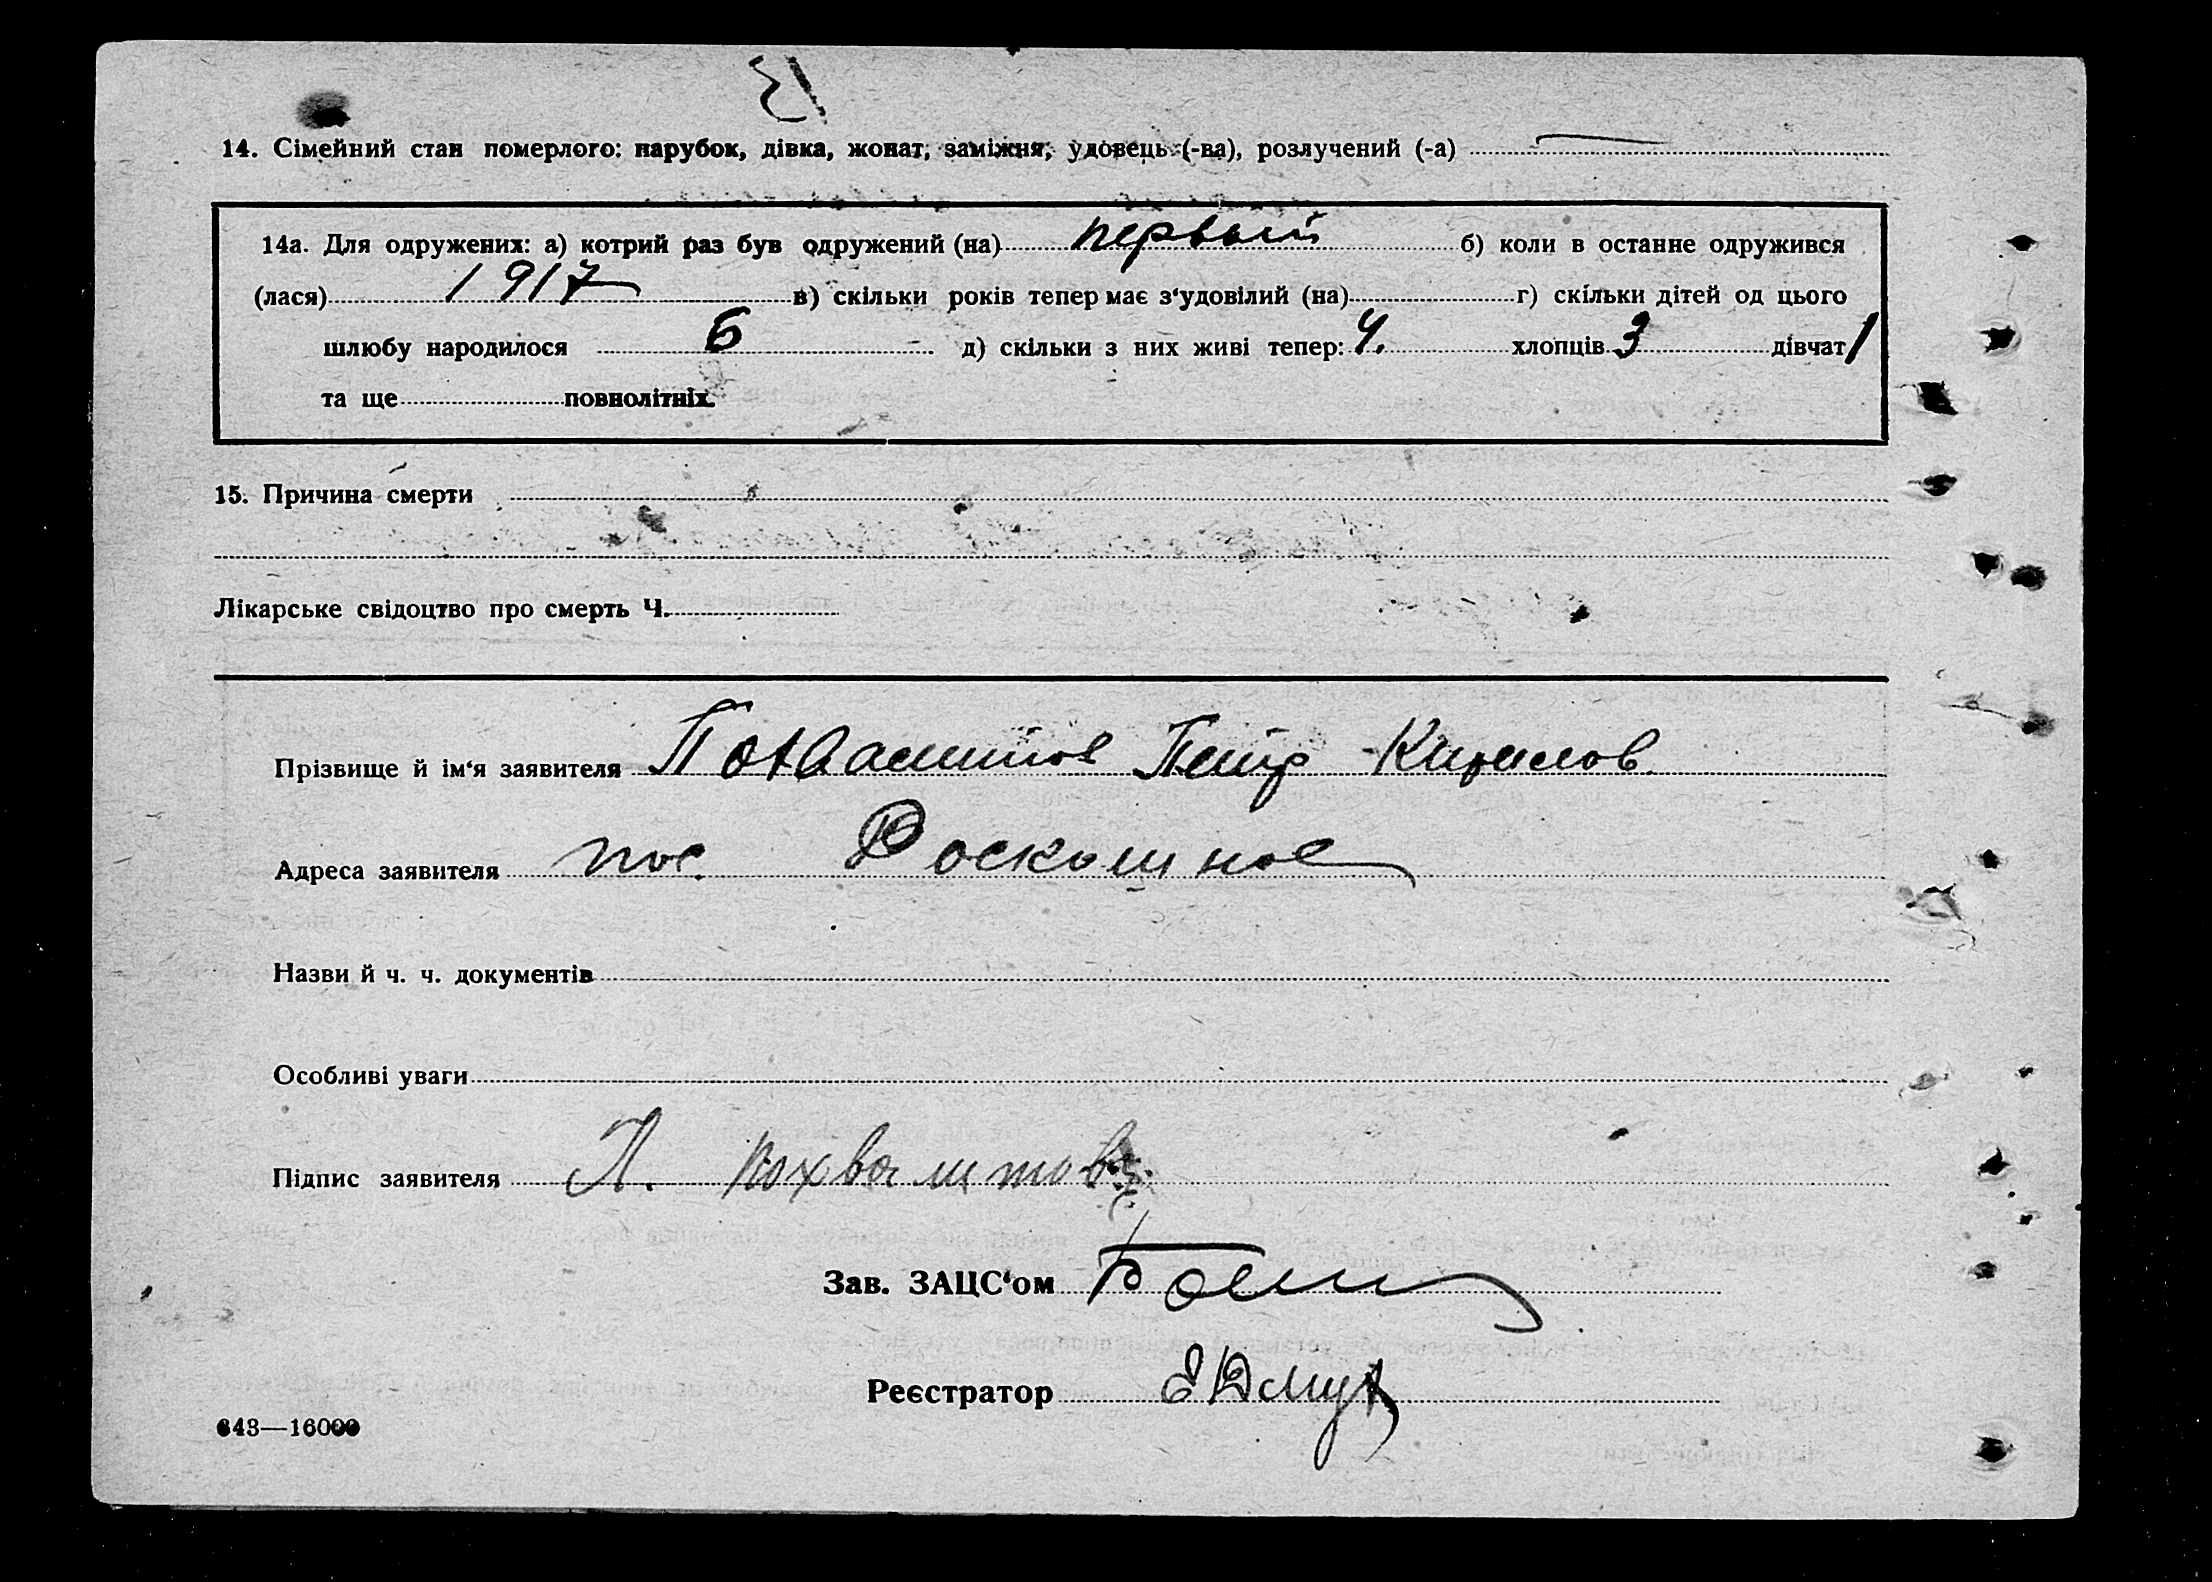 14. Сімейний стан померлого: нарубок, дівка, жонат, заміжня, удовець (-ва), розлучений (-а)
14а. Для одружених: а) котрий раз був одружений (на) первый б) коли в останнє одружився
(лася) 1917 в) скільки років тепер має з‘удовілий (на) г) скільки дітей од цього
шлюбу народилося 6 д) скільки з них живі тепер: 4. хлопців 3 дівчат 1
та ще повнолітніх.
15. Причина смерти
Лікарське свідоцтво про смерть Ч.
Прізвище й ім‘я заявителя Похвалитов Петр Кирилов
Адреса заявителя пос. Роскошное
Назви й ч. ч. документів
Особливі уваги
Підпис заявителя П. Похвалитов
Зав. ЗАЦС‘ом
Реєстратор
643—16000